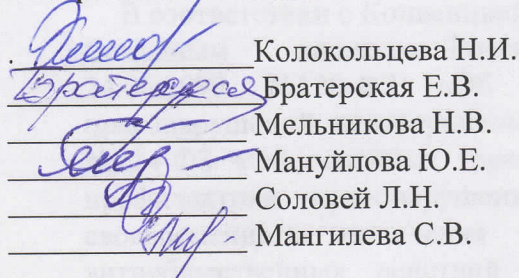 Колокольцева Н.И.
Братерская Братерская Е.В.
Мельникова Н.В.
Мануйлова Ю.Е.
Соловей Л.Н.
Мангилева С.В.